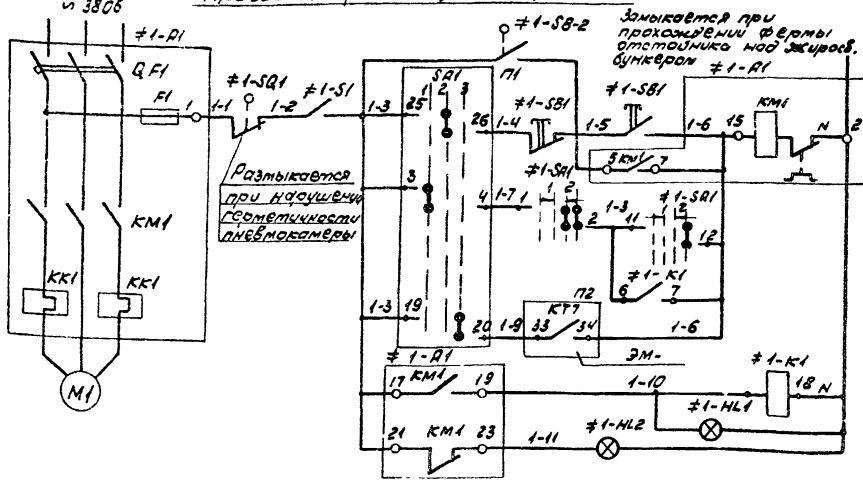 380В
≠1-А1
QF1
F1
1
1-1
≠1-SQ1
1-2
≠1-S1
1-3
Размыкается
при нарушении
герметичности
пневмокамеры
КМ1
КК1
КК1
М1
≠1-SB-2
Замыкается при
прохождении фермы
отстойника над жиросб.
бункером
≠1-А1
SA1
П1
1 2 3
25
26
1-4
≠1-SB1
1-5
≠1-SB1
1-6
15
КМ1
N
2
5 КМ1 7
3
4
1-7
1
≠1-SA1
1 2
2
1-3
11
≠1-SA1
1 2
12
≠1-К1
6
7
1-3
19
20
1-9
П2
КТ7
33
34
1-6
ЭМ-
≠1-А1
17
КМ1
19
1-10
≠1-К1
18
N
≠1-HL1
21
КМ1
23
1-11
≠1-HL2